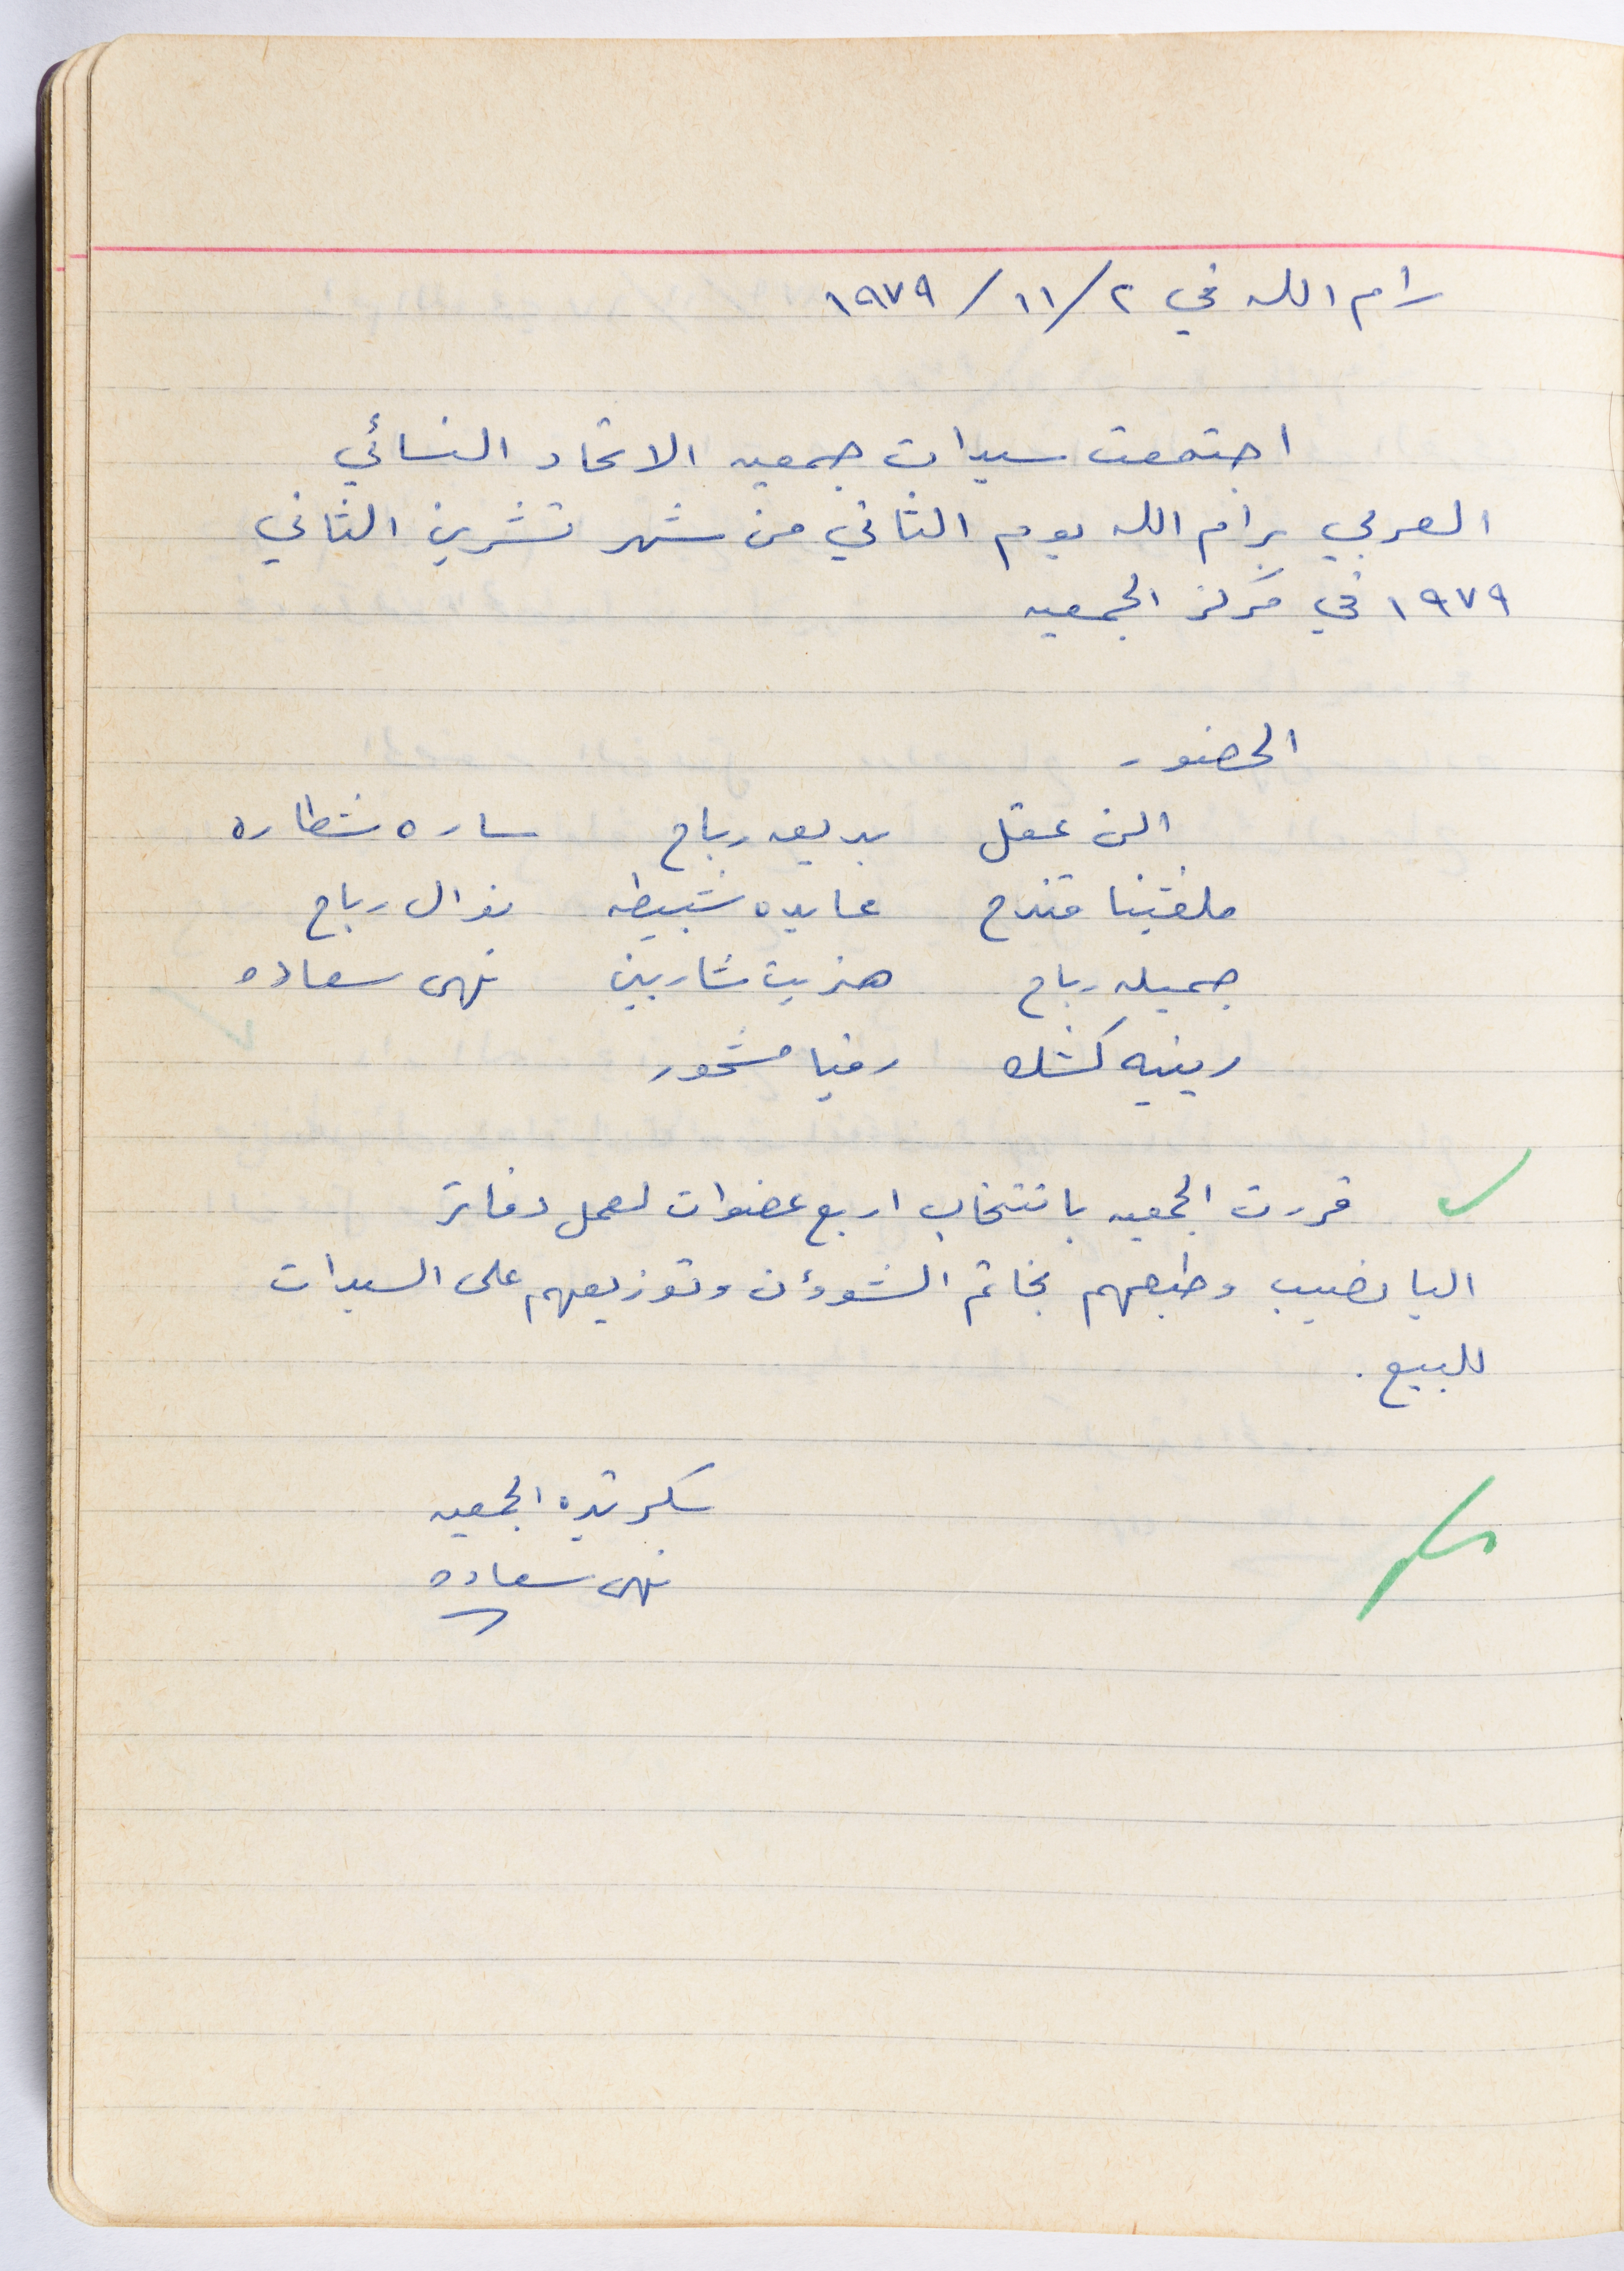 رام الله في ٢/١١/١٩٧٩
اجتمعت سيدات جمعيه الاتحاد النسائي
العربي برام الله يوم الثاني من شهر تشرين الثاني
١٩٧٩ في مركز الجمعيه
الحضور
الن عقل بديعه رباح ساره شطاره
ملفتينا قندح عايده شبيطه نوال رباح
جميله رباح هنريت شاربين نهى سعاده
رينيه كشك رضيا مشحور
قررت الجمعيه بانتخاب اربع عضوات لعمل دفاتر
اليانصيب وطبعهم بخاتم الشوؤن وتوزيعهم على السيدات
للبيع.
سكرتيره الجمعيه
نهى سعاده